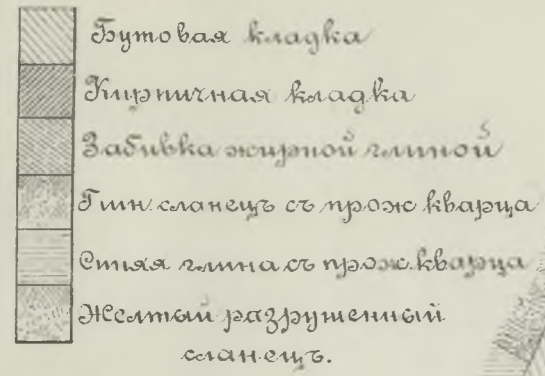 Бутовая кладка
Кирпичная кладка
Забивка жирной глиной
Глин. сланецъ съ прож кварца
Синяя глина съ прож. кварца
Желтый разрушенный
сланецъ.